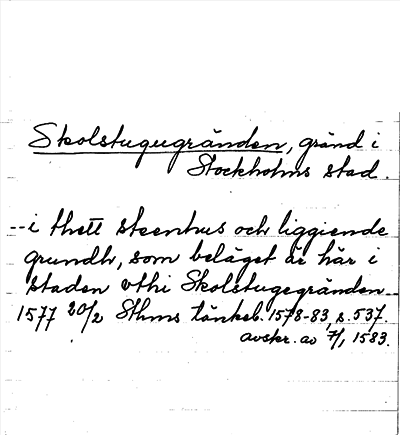 Skolstugugränden, gränd i
Stockholms stad.
--i thett steenhus och liggiende
grundh, som beläget är här i
staden vthi Skolstugegränden--
1577 20/2 Sthms tänkeb. 1578-83, s. 537.
avskr. av 7/1, 1583.